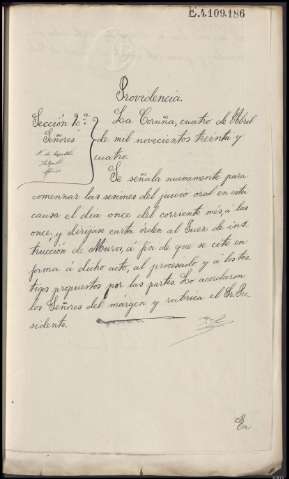 E.4.109.186
Providencia.
Sección 2.ª
Señores
La Coruña, cuatro de Abril
de mil novecientos treinta y
cuatro.
Se señala nuevamente para
comenzar las sesiones del juicio oral en esta
causa el dia once del corriente mes, a las
once, y dirijase carta orden al Juez de ins-
trucción de Muros, á fin de que se cite en
forma á dicho acto, al procesado y á los tes-
tigos propuestos por las partes. Lo acordaron
los Señores del márgen y rubrica el Sr. Pre-
sidente.
En